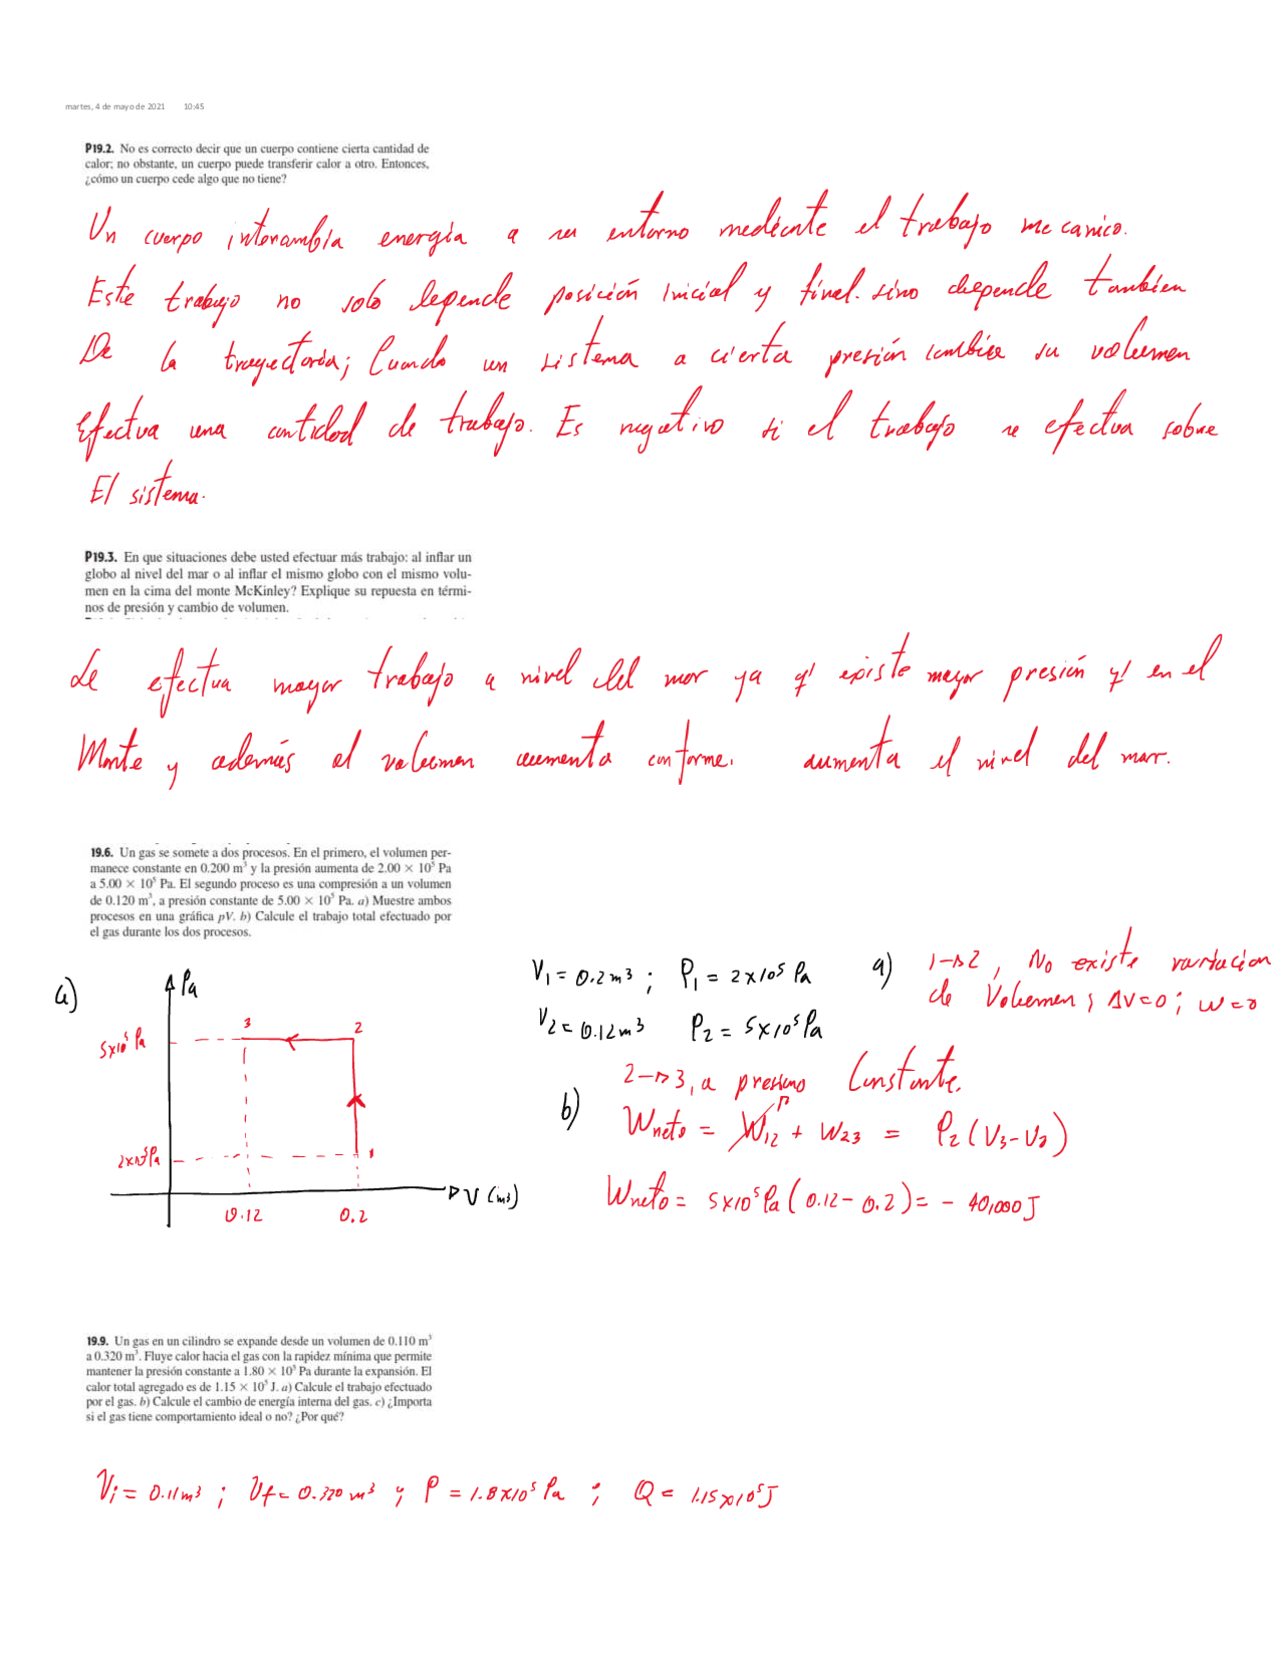 martes, 4 de mayo de 2021 10:45
P19.2. No es correcto decir que un cuerpo contiene cierta cantidad de
calor; no obstante, un cuerpo puede transferir calor a otro. Entonces,
¿cómo un cuerpo cede algo que no tiene?
Un cuerpo intercambia energía a su entorno mediante el trabajo mecanico.
Este trabajo no solo depende posición inicial y final. sino depende también
De la trayectoria; Cuando un sistema a cierta presión cambia su volumen
Efectua una cantidad de trabajo. Es negativo si el trabajo se efectua sobre
El sistema.
P19.3. En que situaciones debe usted efectuar más trabajo: al inflar un
globo al nivel del mar o al inflar el mismo globo con el mismo volu-
men en la cima del monte McKinley? Explique su repuesta en térmi-
nos de presión y cambio de volumen.
Se efectua mayor trabajo a nivel del mar ya q' existe mayor presión q' en el
Monte y además el volumen aumenta conforme. aumenta el nivel del mar.
19.6. Un gas se somete a dos procesos. En el primero, el volumen per-
manece constante en 0.200 m³ y la presión aumenta de 2.00 × 10⁵ Pa
a 5.00 × 10⁵ Pa. El segundo proceso es una compresión a un volumen
de 0.120 m³, a presión constante de 5.00 × 10⁵ Pa. a) Muestre ambos
procesos en una gráfica pV. b) Calcule el trabajo total efectuado por
el gas durante los dos procesos.
a) Pa
5x10⁵ Pa 3 2
2x10⁵Pa 1
V (m³)
0.12 0.2
V₁ = 0.2m³ ; P₁ = 2x10⁵ Pa
V₂ = 0.12m³ P₂ = 5x10⁵ Pa
a) 1→2, No existe variacion
de Volumen; ΔV=0; W=0
2→3, a presion Constante.
b) Wneto = W₁₂ + W₂₃ = P₂(V₃-V₂)
Wneto = 5x10⁵ Pa (0.12 - 0.2) = - 40,000 J
19.9. Un gas en un cilindro se expande desde un volumen de 0.110 m³
a 0.320 m³. Fluye calor hacia el gas con la rapidez mínima que permite
mantener la presión constante a 1.80 × 10⁵ Pa durante la expansión. El
calor total agregado es de 1.15 × 10⁵ J. a) Calcule el trabajo efectuado
por el gas. b) Calcule el cambio de energía interna del gas. c) ¿Importa
si el gas tiene comportamiento ideal o no? ¿Por qué?
Vi = 0.11m³ ; Vf = 0.320 m³ ; P = 1.8x10⁵ Pa ; Q = 1.15x10⁵J